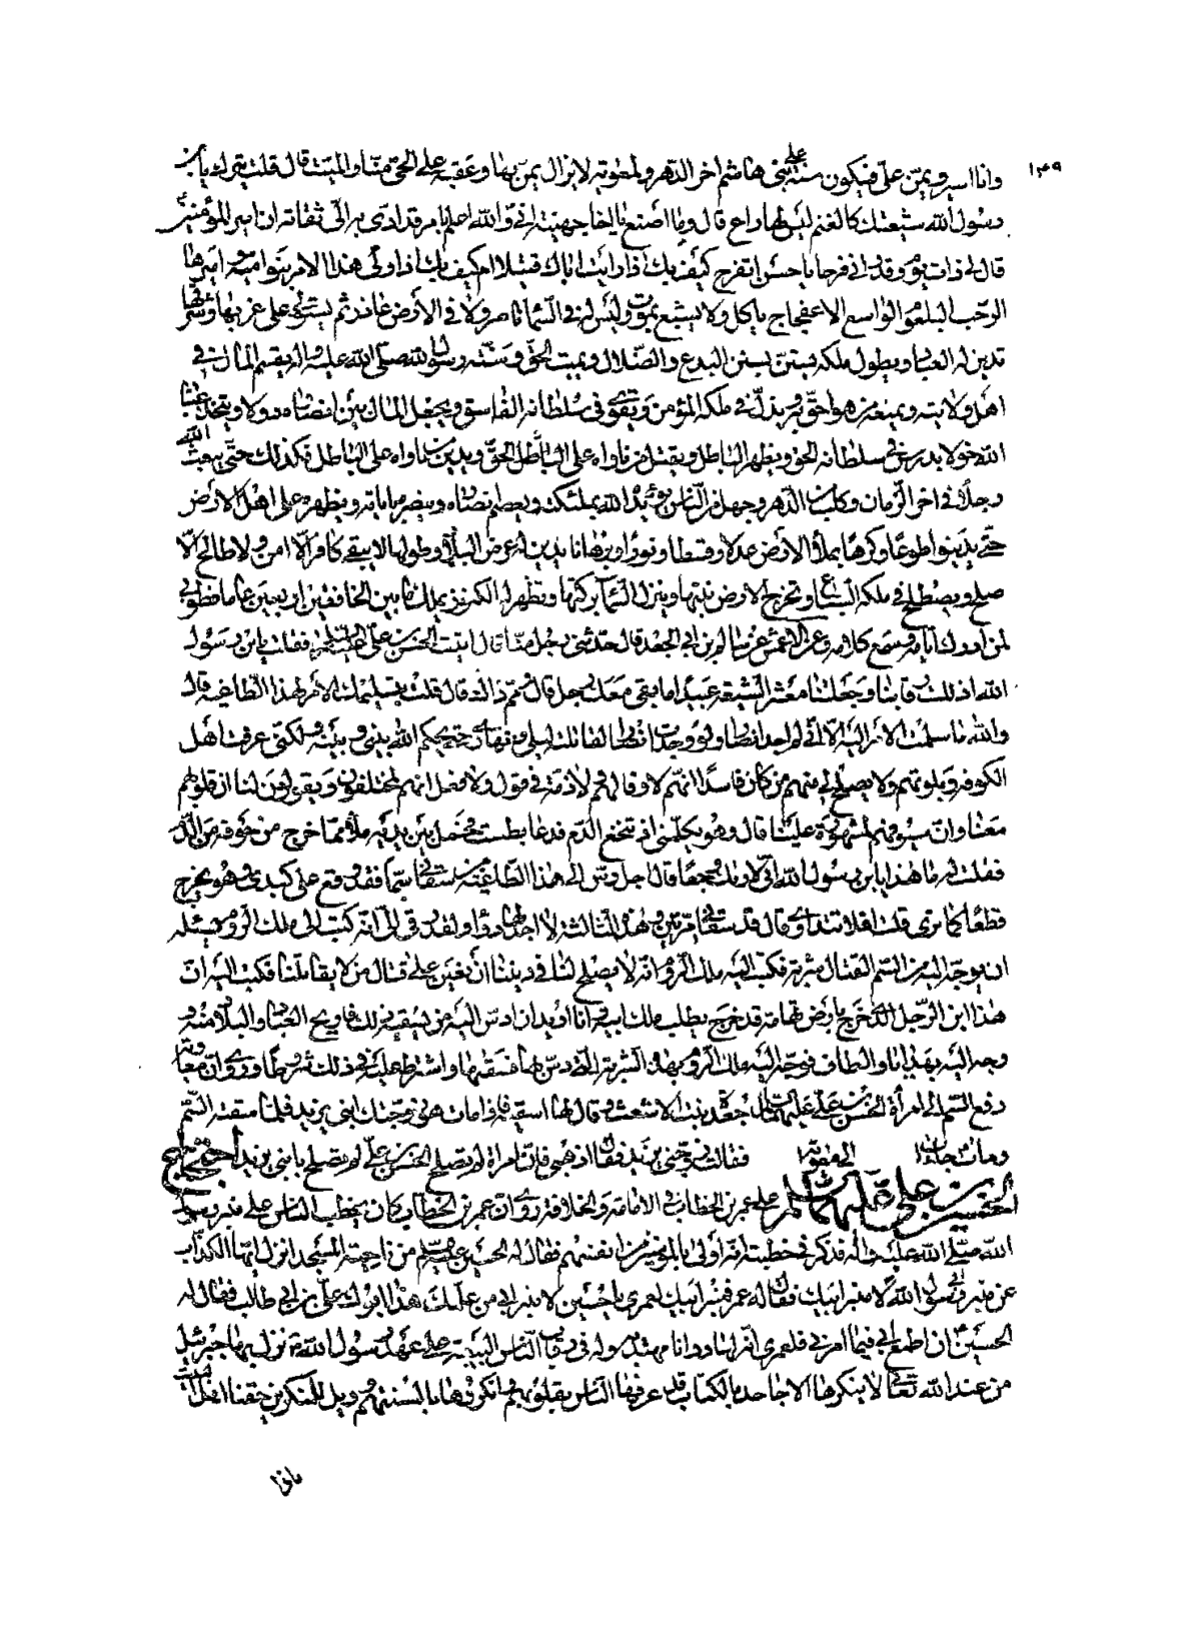 ١٣٩
وانا اسير ويمن علي فيكون سنة على بني هاشم اخر الدهر ولمعوية لا يزال يمن بها وعقبه على الحي منا والميت قال قلت تترك يا بن
رسول الله شيعتك كالغنم ليس لها راع قال وما اصنع يا اخا جهينة اني والله اعلم بامر قد ادى به الي ثقاته ان امير المؤمنين
قال لي ذات يوم وقد راني فرحا يا حسن اتفرح كيف بك اذا رايت اباك قتيلا ام كيف بك اذا ولى هذا الامر بنو امية واميرها
الرحب البلعوم الواسع الاعفجاج ياكل ولا يشبع يموت وليس له في السماء ناصر ولا في الارض عاذر ثم يستولى على غربها وشرقها
تدين له العباد ويطول ملكه يستن بسنن البدع والضلال ويميت الحق وسنة رسول الله صلى الله عليه واله يقسم المال في
اهل ولايته ويمنعه من هو احق به ويذل في ملكه المؤمن ويقوى في سلطانه الفاسق ويجعل المال بين انصاره دولا ويتخذ عباد
الله خولا يدرس في سلطانه الحق ويظهر الباطل ويقتل من ناواه على الحق ويدين من والاه على الباطل فكذلك حتى يبعث الله
رجلا في اخر الزمان وكلب من الدهر وجهل من الناس يؤيده الله بملئكته ويعصم انصاره وينصره باياته ويظهره على اهل الارض
حتى يدينوا طوعا وكرها يملأ الارض عدلا وقسطا ونورا وبرهانا يدين له عرض البلاد وطولها لا يبقى كافر الا امن به ولا طالح الا
صلح ويصطلح في ملكه السباع وتخرج الارض نبتها وينزل السماء بركتها وتظهر له الكنوز يملك ما بين الخافقين اربعين عاما فطوبى
لمن ادرك ايامه وسمع كلامه وعن الاعمش عن سالم بن ابي الجعد قال حدثني رجل منا قال اتيت الحسن بن علي عليهما السلم فقلت يا بن رسول
الله اذللت رقابنا وجعلتنا معشر الشيعة عبيدا ما بقى معك رجل قال ومم ذاك قال قلت بتسليمك الامر لهذا الطاغية قال
والله ما سلمت الامر اليه الا اني لم اجد انصارا ولو وجدت انصارا لقاتلته ليلي ونهاري حتى يحكم الله بيني وبينه ولكني عرفت اهل
الكوفة وبلوتهم ولا يصلح لي منهم من كان فاسدا انهم لا وفاء لهم ولا ذمة في قول ولا فعل انهم لمختلفون ويقولون لنا ان قلوبهم
معنا وان سيوفهم لمشهورة علينا قال وهو يكلمني اذ تنخع الدم فدعا بطست فحمل من بين يديه ملأ مما خرج من جوفه من الدم
فقلت له ما هذا يا بن رسول الله اني لاراك وجعا قال اجل دس الي هذا الطاغية من سقاني سما فقد وقع على كبدي وهو يخرج
قطعا كما ترى قلت افلا تتداوى قال قد سقاني مرتين وهذه الثالثة لا اجد لها دواء ولقد رقى الي انه كتب الى ملك الروم يسئله
ان يوجه اليه من السم القتال شربة فكتب اليه ملك الروم انه لا يصلح لنا في ديننا ان نعين على قتال من لا يقاتلنا فكتب اليه ان
هذا ابن الرجل الذي خرج بارض تهامة قد خرج يطلب ملك ابيه انا اريد ان ادس اليه من يسقيه ذلك فاريح العباد والبلاد منه و
وجه اليه بهدايا والطاف فوجه اليه ملك الروم بهذه الشربة التي دس بها فسقيتها واشترط عليه في ذلك شروطا وروى ان معاوية
دفع السم الى امرأة الحسن بن علي عليهما السلم جعدة بنت الاشعث وقال لها اسقيه فاذا مات هو زوجتك ابني يزيد فلما سقته السم
ومات جاءت الى معوية فقالت زوجني يزيد فقال اذهبي فان امراة لا تصلح للحسن بن علي لا تصلح يا ابني يزيد احتجاج
الحسين بن علي عليهما السلم على عمر بن الخطاب في الامامة والخلافة روى ان عمر بن الخطاب كان يخطب الناس على منبر رسول
الله صلى الله عليه واله فذكر في خطبته انه اولى بالمؤمنين من انفسهم فقال له الحسين عليه السلم من ناحية المسجد انزل ايها الكذاب
عن منبر ابي رسول الله لا منبر ابيك فقال له عمر فمنبر ابيك لعمري يا حسين لا منبر ابي من علمك هذا ابوك علي بن ابي طالب فقال له
الحسين ان اطع ابي فيما امرني فلعمري انه لهاد وانا مهتد به وله في رقاب الناس البيعة على عهد رسول الله نزل بها جبرئيل
من عند الله تعالى لا ينكرها الا جاحد بالكتاب قد عرفها الناس بقلوبهم وانكروها بالسنتهم وويل للمنكرين حقنا اهل البيت
ماذا